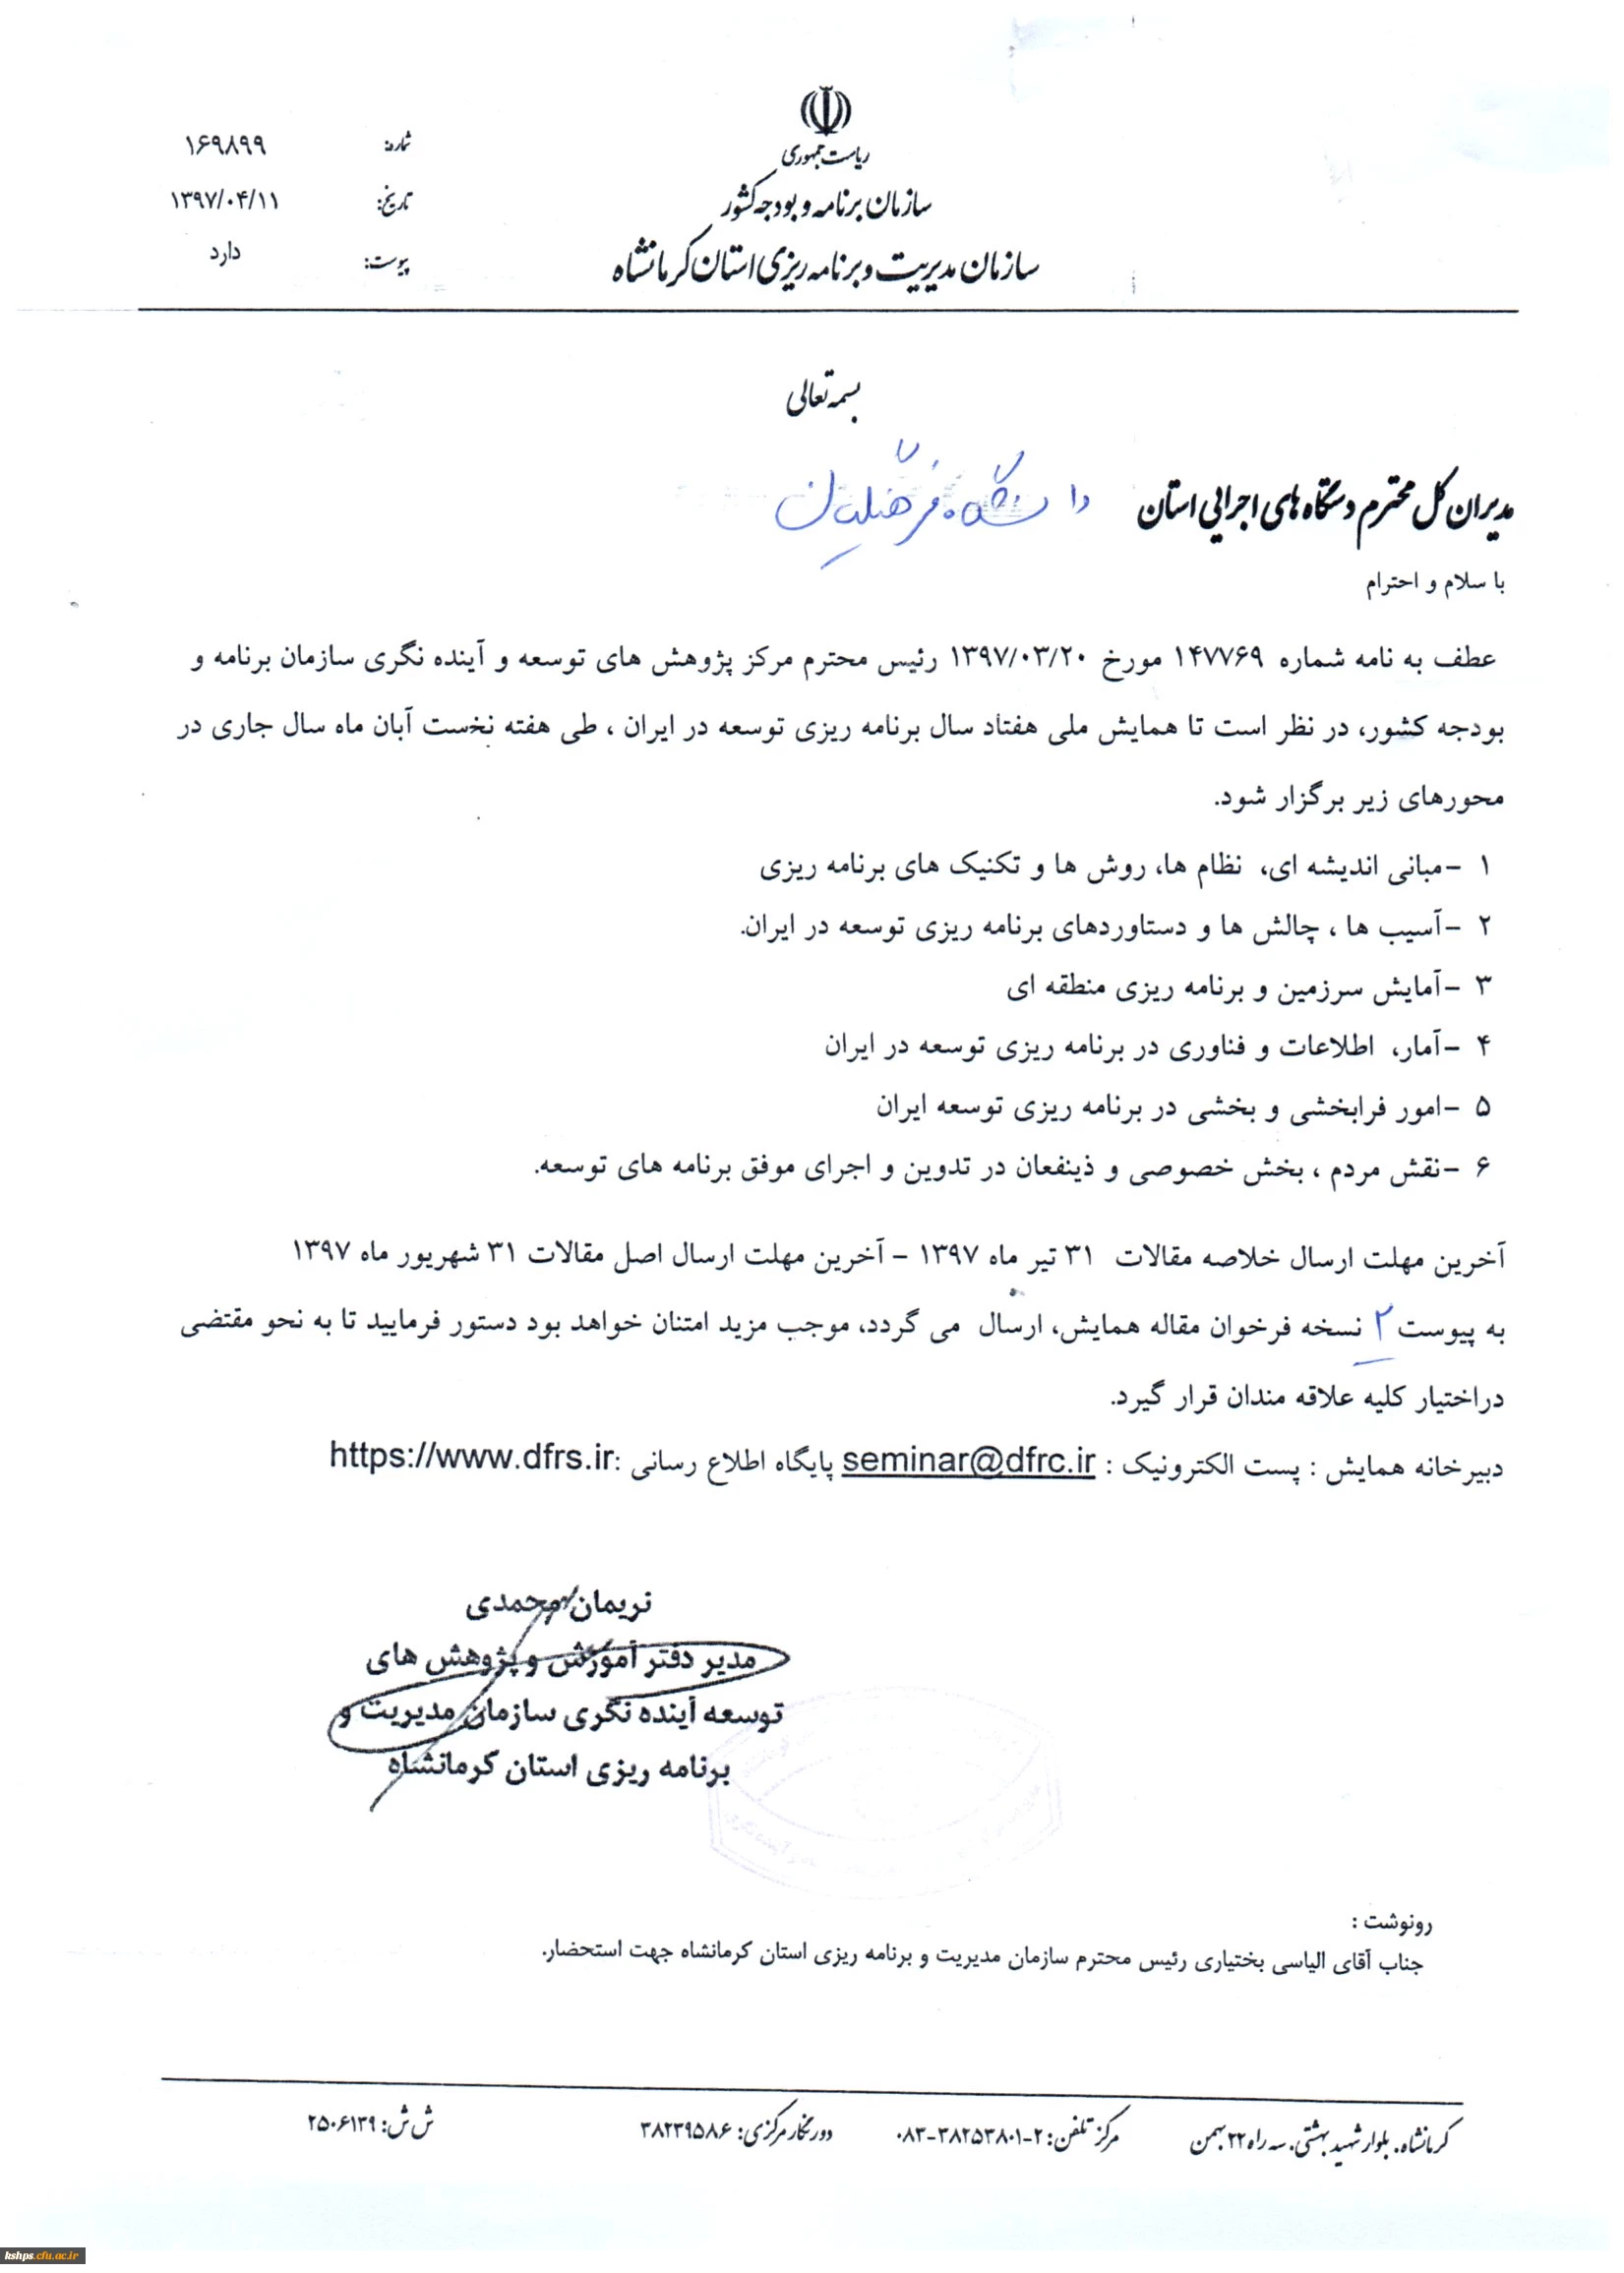 ریاست جمهوری
سازمان برنامه و بودجه کشور
سازمان مدیریت و برنامه ریزی استان کرمانشاه
شماره: ۱۶۹۸۹۹
تاریخ: ۱۳۹۷/۰۴/۱۱
پیوست: دارد
بسمه تعالی
مدیران کل محترم دستگاه های اجرایی استان دانشگاه فرهنگیان
با سلام و احترام
عطف به نامه شماره ۱۴۷۷۶۹ مورخ ۱۳۹۷/۰۳/۲۰ رئیس محترم مرکز پژوهش های توسعه و آینده نگری سازمان برنامه و
بودجه کشور، در نظر است تا همایش ملی هفتاد سال برنامه ریزی توسعه در ایران ، طی هفته نخست آبان ماه سال جاری در
محورهای زیر برگزار شود.
۱ -مبانی اندیشه ای، نظام ها، روش ها و تکنیک های برنامه ریزی
۲ -آسیب ها ، چالش ها و دستاوردهای برنامه ریزی توسعه در ایران.
۳ -آمایش سرزمین و برنامه ریزی منطقه ای
۴ -آمار، اطلاعات و فناوری در برنامه ریزی توسعه در ایران
۵ -امور فرابخشی و بخشی در برنامه ریزی توسعه ایران
۶ -نقش مردم ، بخش خصوصی و ذینفعان در تدوین و اجرای موفق برنامه های توسعه.
آخرین مهلت ارسال خلاصه مقالات ۳۱ تیر ماه ۱۳۹۷ - آخرین مهلت ارسال اصل مقالات ۳۱ شهریور ماه ۱۳۹۷
به پیوست ۲ نسخه فرخوان مقاله همایش، ارسال می گردد، موجب مزید امتنان خواهد بود دستور فرمایید تا به نحو مقتضی
دراختیار کلیه علاقه مندان قرار گیرد.
دبیرخانه همایش : پست الکترونیک : seminar@dfrc.ir پایگاه اطلاع رسانی :https://www.dfrs.ir
نریمان محمدی
مدیر دفتر آموزش و پژوهش های
توسعه آینده نگری سازمان مدیریت و
برنامه ریزی استان کرمانشاه
رونوشت :
جناب آقای الیاسی بختیاری رئیس محترم سازمان مدیریت و برنامه ریزی استان کرمانشاه جهت استحضار.
کرمانشاه، بلوار شهید بهشتی، سه راه ۲۲ بهمن مرکز تلفن: ۲-۳۸۲۵۳۸۰۱-۰۸۳ دورنگار مرکزی: ۳۸۲۳۹۵۸۶ ش ش: ۲۵۰۶۱۳۹
kshps.cfu.ac.ir